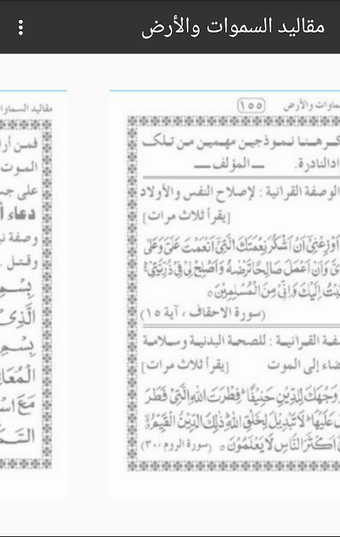 مقاليد السموات والأرض
ماوات والأرض
(١٥٥)
نا نموذجين مهمين من تلك
النادرة. — المؤلف —
الوصفة القرآنية : لإصلاح النفس والأولاد
[يقرأ ثلاث مرات]
أَوْزِعْنِيٓ أَنْ أَشْكُرَ نِعْمَتَكَ الَّتِيٓ أَنْعَمْتَ عَلَيَّ وَعَلَىٰ
وَأَنْ أَعْمَلَ صَالِحًا تَرْضَاهُ وَأَصْلِحْ لِي فِي ذُرِّيَّتِيٓ
إِلَيْكَ وَإِنِّي مِنَ الْمُسْلِمِينَ
(سورة الاحقاف ، آية ١٥)
القرآنية : للصحة البدنية وسلامة
إلى الموت [يقرأ ثلاث مرات]
وَجْهَكَ لِلدِّينِ حَنِيفًا فِطْرَتَ اللَّهِ الَّتِي فَطَرَ
عَلَيْهَا لَا تَبْدِيلَ لِخَلْقِ اللَّهِ ذَٰلِكَ الدِّينُ الْقَيِّمُ
أَكْثَرَ النَّاسِ لَا يَعْلَمُونَ (سورة الروم ٣٠٠)
مقاليد السماو
فمن أرا
الموت
على جس
دعاء أ
وصفة ن
وقتل .
بِسْمِ
الَّذِي
بِسْمِ
الْمُعَا
مَعَ اسْ
السَّمَ